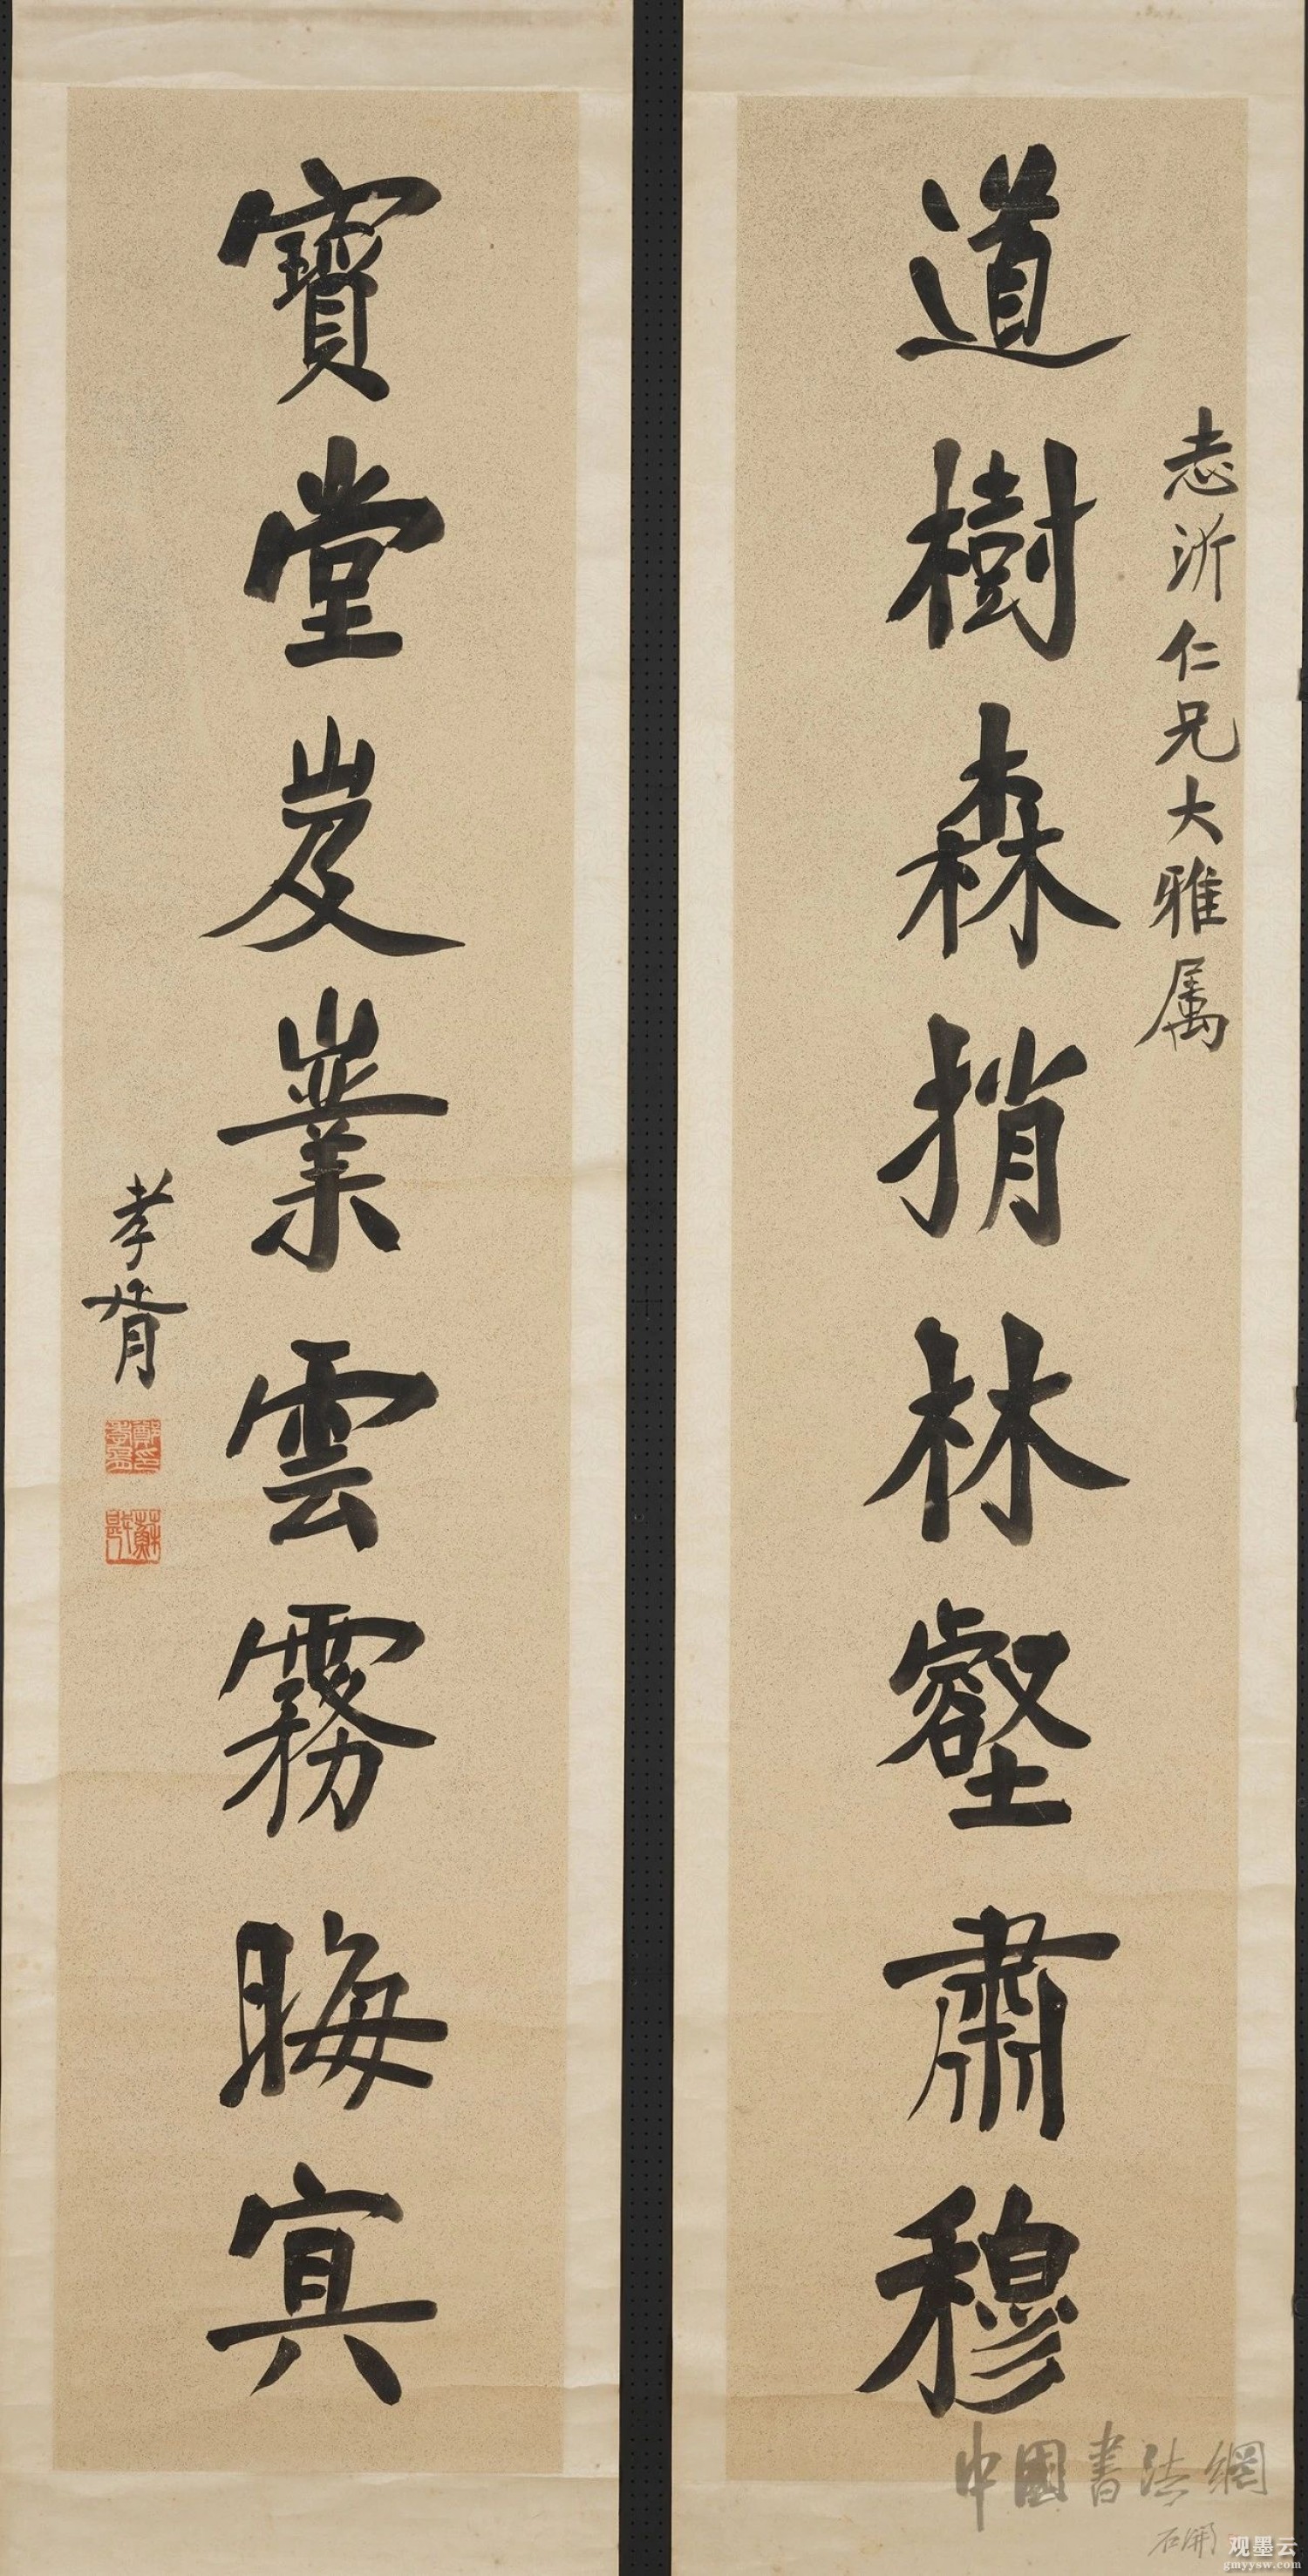 道樹森捎林壑肅穆
志沂仁兄大雅属
寶堂岌嶪雲霧晦冥
孝胥
中國書法網
石開
观墨云
gmyysw.com